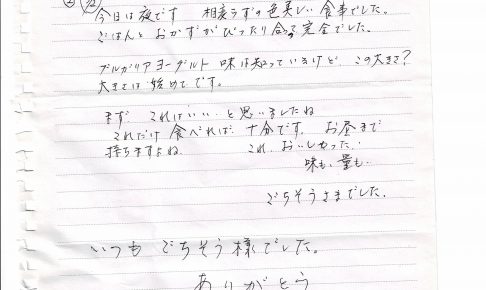 今日は夜です 相変らずの色美しい食事でした。
ごはんとおかずがぴったり合って完全でした。
ブルガリアヨーグルト 味は知っているけど この大きさ?
大きさは始めてです。
まず、これはいい、と思いましたね
これだけ食べれば、十分です。 お昼まで
持ちますよね。 これ、おいしかった。
味も、量も、
ごちそうさまでした。
いつも ごちそう様でした。
ありがとう